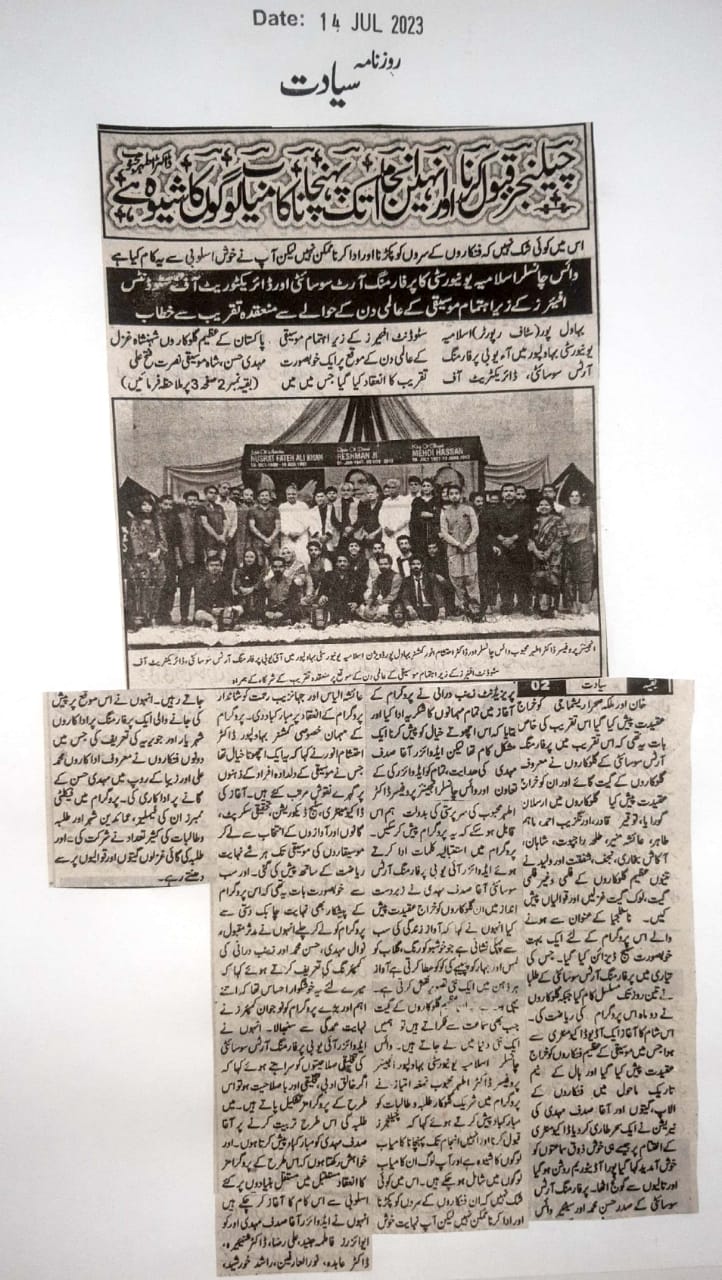 Date: 14 JUL 2023
روزنامہ
سیادت
چیلنجز قبول کرنا اور انہیں انجام تک پہنچانا کامیاب لوگوں کا شیوہ ہے
ڈاکٹر اطہر محبوب
اس میں کوئی شک نہیں کہ فنکاروں کے سروں کو پکڑنا اور ادا کرنا ممکن نہیں لیکن آپ نے خوش اسلوبی سے یہ کام کیا ہے
وائس چانسلر اسلامیہ یونیورسٹی کا پرفارمنگ آرٹ سوسائٹی اور ڈائریکٹوریٹ آف سٹوڈنٹس
افیئرز کے زیر اہتمام موسیقی کے عالمی دن کے حوالے سے منعقدہ تقریب سے خطاب
بہاول پور (سٹاف رپورٹر) اسلامیہ
یونیورسٹی بہاولپور میں آئی یو بی پرفارمنگ
آرٹس سوسائٹی، ڈائریکٹریٹ آف
سٹوڈنٹ افیئرز کے زیر اہتمام موسیقی
کے عالمی دن کے موقع پر ایک خوبصورت
تقریب کا انعقاد کیا گیا جس میں
پاکستان کے عظیم گلوکاروں شہنشاہ غزل
مہدی حسن، شاہ موسیقی نصرت فتح علی
(بقیہ نمبر 2 صفحہ 3 پر ملاحظہ فرمائیں)
NUSRAT FATEH ALI KHAN
RESHMAN JI
MEHDI HASSAN
انجینئر پروفیسر ڈاکٹر اطہر محبوب وائس چانسلر اور ڈاکٹر احتشام انور کمشنر بہاول پور ڈویژن اسلامیہ یونیورسٹی بہاولپور میں آئی یو بی پرفارمنگ آرٹس سوسائٹی، ڈائریکٹریٹ آف
سٹوڈنٹ افیئرز کے زیر اہتمام موسیقی کے عالمی دن کے موقع پر منعقدہ تقریب کے شرکاء کے ہمراہ
بقیہ سیادت 02
خان اور ملکہ صحرا ریشماں جی کو خراج
عقیدت پیش کیا گیا اس تقریب کی خاص
بات یہ تھی کہ اس تقریب میں پرفارمنگ
آرٹس سوسائٹی کے گلوکاروں نے معروف
گلوکاروں کے گیت گائے اور ان کو خراج
عقیدت پیش کیا گلوکاروں میں ارسلان
گورایا، توقیر قادر، اورنگزیب احمد، باہم
طاہر، عائشہ منیر، طلحہ راجپوت، شاہان،
آکاش بخاری، نجف، شفقت اور ولید نے
تینوں عظیم گلوکاروں کے فلمی و غیر فلمی
گیت، لوک گیت غزلیں اور قوالیاں پیش
کیں۔ ناسٹلجیا کے عنوان سے ہونے
والے اس پروگرام کے لئے ایک بہت
خوبصورت سٹیج ڈیزائن کیا گیا۔ جس کی
تیاری میں پرفارمنگ آرٹس سوسائٹی کے طلبا
نے تین روز تک مسلسل کام کیا جبکہ گلوکاروں
نے دو ماہ اس پروگرام کی ریاضت کی۔
اس شام کا آغاز ایک آڈیو ڈاکومنٹری سے
ہوا جس میں موسیقی کے عظیم فنکاروں کو خراج
عقیدت پیش کیا گیا اور ہال کے نیم
تاریک ماحول میں فنکاروں کے
الاپ، گیتوں اور آغا صدف مہدی کی
نیریشن نے ایک سحر طاری کر دیا ڈاکومنٹری
کے اختتام پر جیسے ہی خوش ذوق سامعتوں کو
خوش آمدید کہا گیا پورا آڈیٹوریم روشن ہو گیا
اور تالیوں سے گونج اٹھا۔ پرفارمنگ آرٹس
سوسائٹی کے صدر حسن محمد اور سینئر وائس
پریزیڈنٹ زینب درانی نے پروگرام کے
آغاز میں تمام مہمانوں کا شکریہ ادا کیا اور
بتایا کہ اس اچھوتے خیال کو پیش کرنا ایک
مشکل کام تھا لیکن ایڈوائزر آغا صدف
مہدی کی ہدایت، تمام کو ایڈوائزری کے
تعاون اور وائس چانسلر انجینئر پروفیسر ڈاکٹر
اطہر محبوب کی سرپرستی کی بدولت ہم اس
قابل ہوئے کہ یہ پروگرام پیش کر سکیں۔
پروگرام میں استقبالیہ کلمات ادا کرتے
ہوئے ایڈوائزر آئی یو بی پرفارمنگ آرٹس
سوسائٹی آغا صدف مہدی نے زبردست
انداز میں ان گلوکاروں کو خراج عقیدت پیش
کیا انہوں نے کہا کہ آواز زندگی کی سب
سے پہلی نشانی ہے جو خوشبو کو رنگ، گلاب کو
لمس اور بہار کو پپیہے کی کوک عطا کرتی ہے آواز
ہر ذہن میں ایک نئی تصویر نقش کرتی ہے۔
عظیم گلوکاروں کے گیت
جب بھی سماعت سے ٹکراتے ہیں تو ہمیں
ایک نئی دنیا میں لے جاتے ہیں۔ وائس
چانسلر اسلامیہ یونیورسٹی بہاولپور انجینئر
پروفیسر ڈاکٹر اطہر محبوب تمغہ امتیاز نے
پروگرام میں شریک گلوکار طلبہ و طالبات کو
مبارکباد پیش کرتے ہوئے کہا کہ چیلنجز
قبول کرنا اور انہیں انجام تک پہنچانا کامیاب
لوگوں کا شیوہ ہے اور آپ لوگ ان کامیاب
لوگوں میں شامل ہو چکے ہیں۔ اس میں کوئی
شک نہیں کہ ان فنکاروں کے سروں کو پکڑنا
اور ادا کرنا ممکن نہیں لیکن آپ نہایت خوش
اسلوبی سے اس کام کا آغاز کر چکے ہیں
انہوں نے ایڈوائزر آغا صدف مہدی اور کو
ایڈوائزرز فاطمہ جنید، علی رضا، ڈاکٹر
ڈاکٹر عابدہ، نور العارفین، راشد خورشید،
عائشہ الیاس اور جہانزیب رحمت کو شاندار
پروگرام کے انعقاد پر مبارکباد دی۔ پروگرام
کے مہمان خصوصی کمشنر بہاولپور ڈاکٹر
احتشام انور نے کہا کہ یہ ایک اچھوتا خیال تھا
جس نے موسیقی کے دلدادہ افراد کے ذہنوں
پر گہرے نقوش مرتب کئے ہیں۔ آغاز کی
ڈاکومنٹری، سٹیج ڈیکوریشن، تحقیقی سکرپٹ،
گانوں اور آوازوں کے انتخاب سے لے کر
موسیقاروں کی موسیقی تک ہر شے نہایت
ریاضت کے ساتھ پیش کی گئی۔ اور سب
سے خوبصورت بات یہ تھی کہ اس پروگرام
کے پیشکار بھی نہایت چابک دستی سے
پروگرام کو لے کر چلے انہوں نے مدثر مقبول،
نوال مہدی، حسن محمد اور زینب درانی کی
کمپئرنگ کی تعریف کرتے ہوئے کہا کہ
میرے لئے یہ خوشگوار احساس تھا کہ اتنے
اہم اور بڑے پروگرام کو نوجوان کمپئرز نے
نہایت عمدگی سے سنبھالا۔ انہوں نے
ایڈوائزر آئی یو بی پرفارمنگ آرٹس سوسائٹی
کی تخلیقی صلاحیتوں کو سراہتے ہوئے کہا کہ
اگر خالق ادبی، تخلیقی اور باصلاحیت ہو تو اس
طرح کے پروگرامز تشکیل پاتے ہیں۔ میں
طلبہ کی اس طرح تربیت کرنے پر آغا
صدف مہدی کو مبارکباد پیش کرتا ہوں۔ اور
خواہش رکھتا ہوں کہ اس طرح کے پروگرامز
کا انعقاد مستقبل میں مستقل بنیادوں پر کئے
جاتے رہیں۔ انہوں نے اس موقع پر پیش
کی جانے والی ایک پرفارمنگ پر اداکاروں
شہریار اور جویریہ کی تعریف کی جس میں
دونوں فنکاروں نے معروف اداکاروں محمد
علی اور زیبا کے روپ میں مہدی حسن کے
گانے پر اداکاری کی۔ پروگرام میں فیکلٹی
ممبرز ان کی فیملیز، عمائدین شہر اور طلبہ
و طالبات کی کثیر تعداد نے شرکت کی۔ اور
طلبہ کی گائی غزلوں گیتوں اور قوالیوں پر سے
دھنتے رہے۔